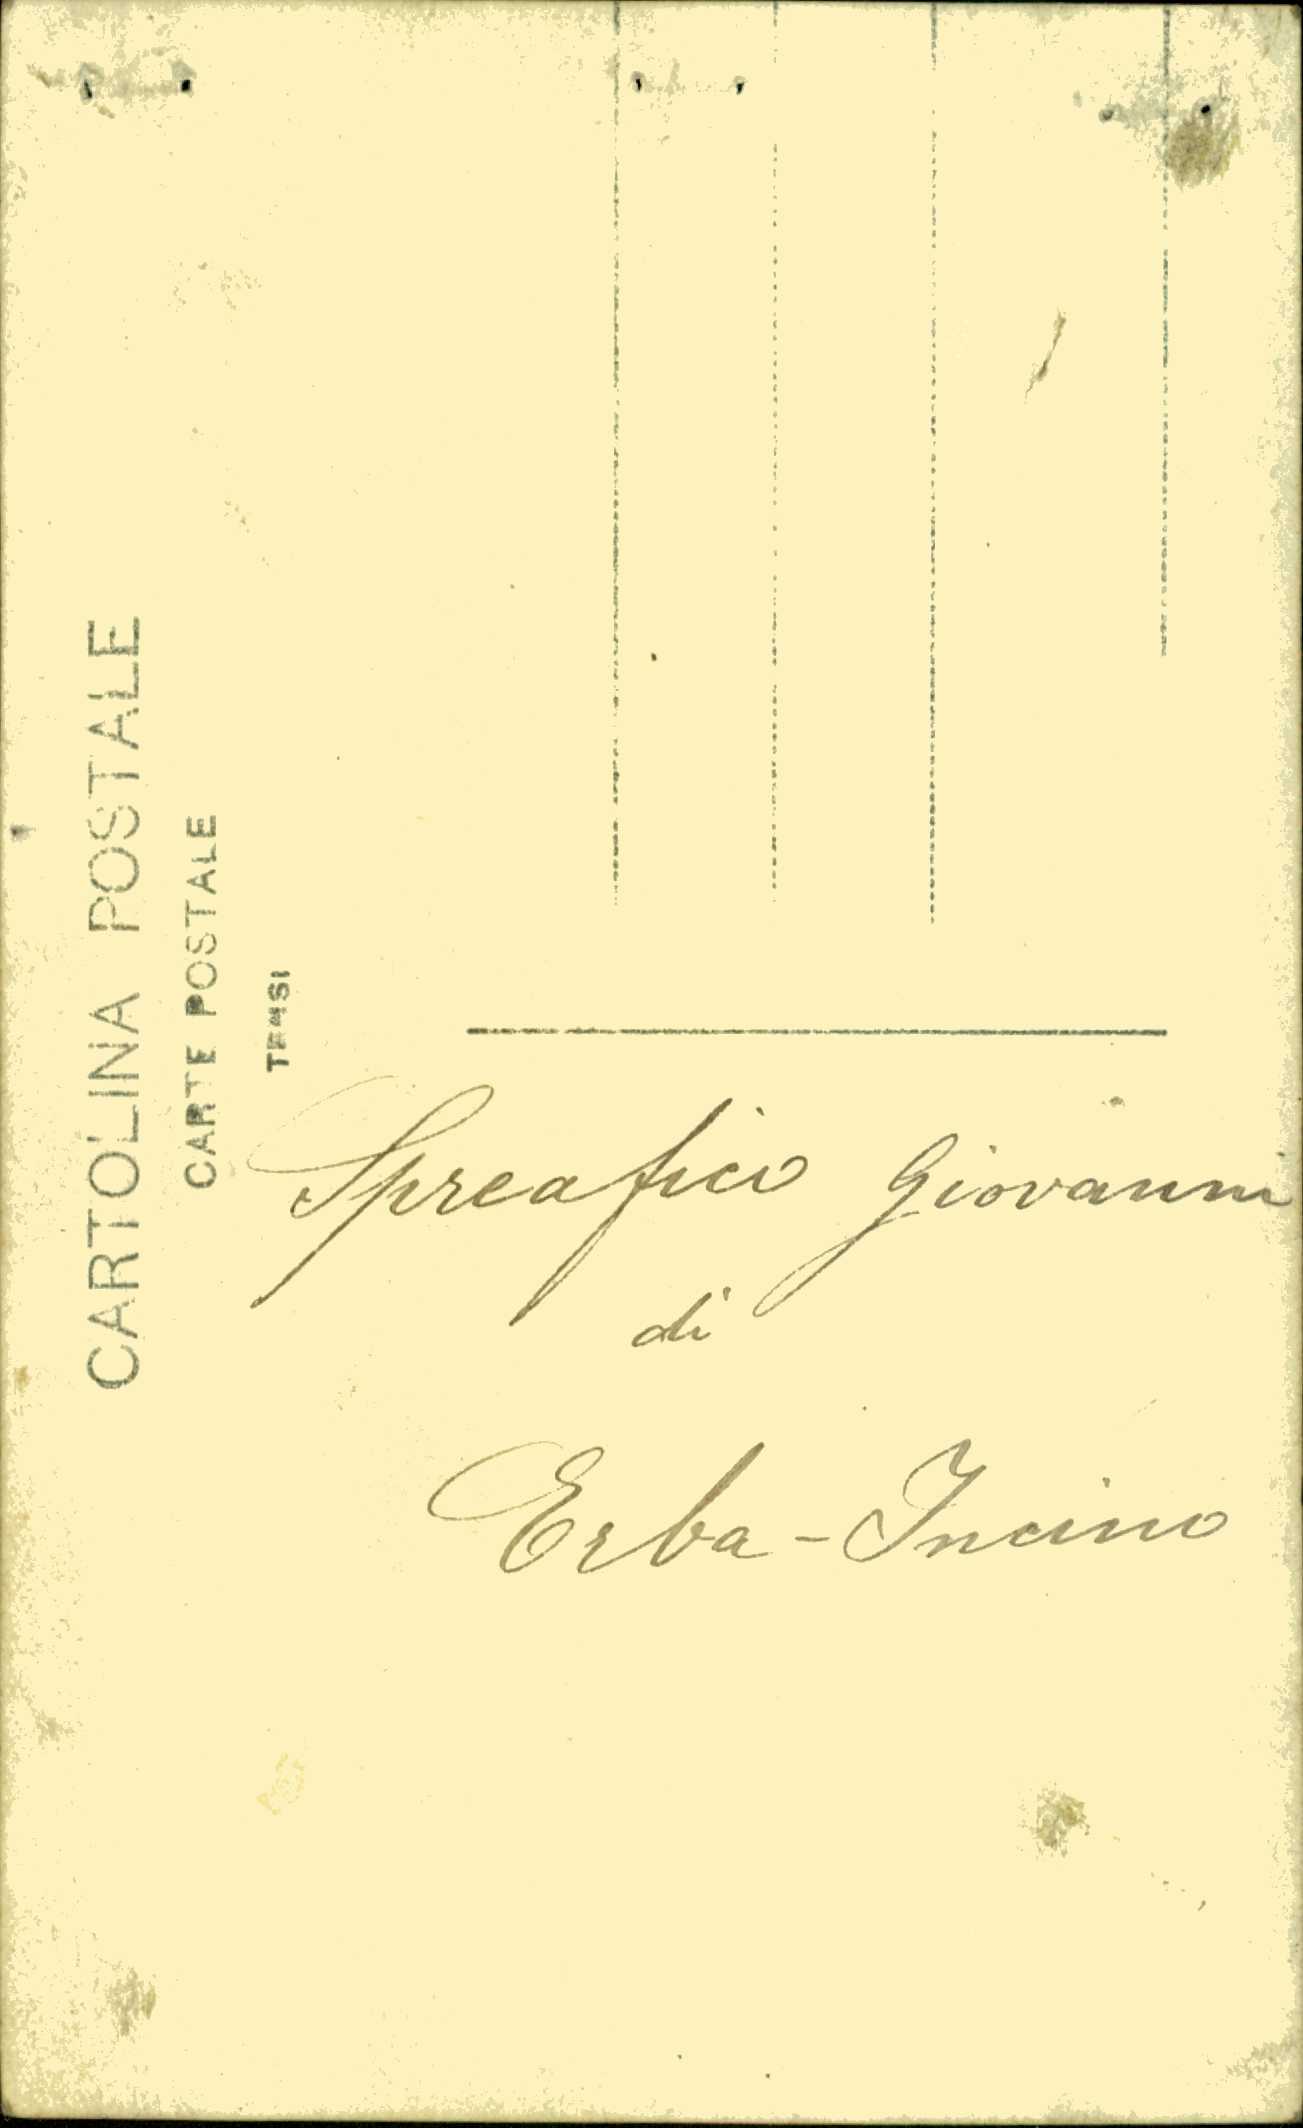 CARTOLINA POSTALE
CARTE POSTALE
TENSI
Spreafico Giovanni
di
Erba-Incino